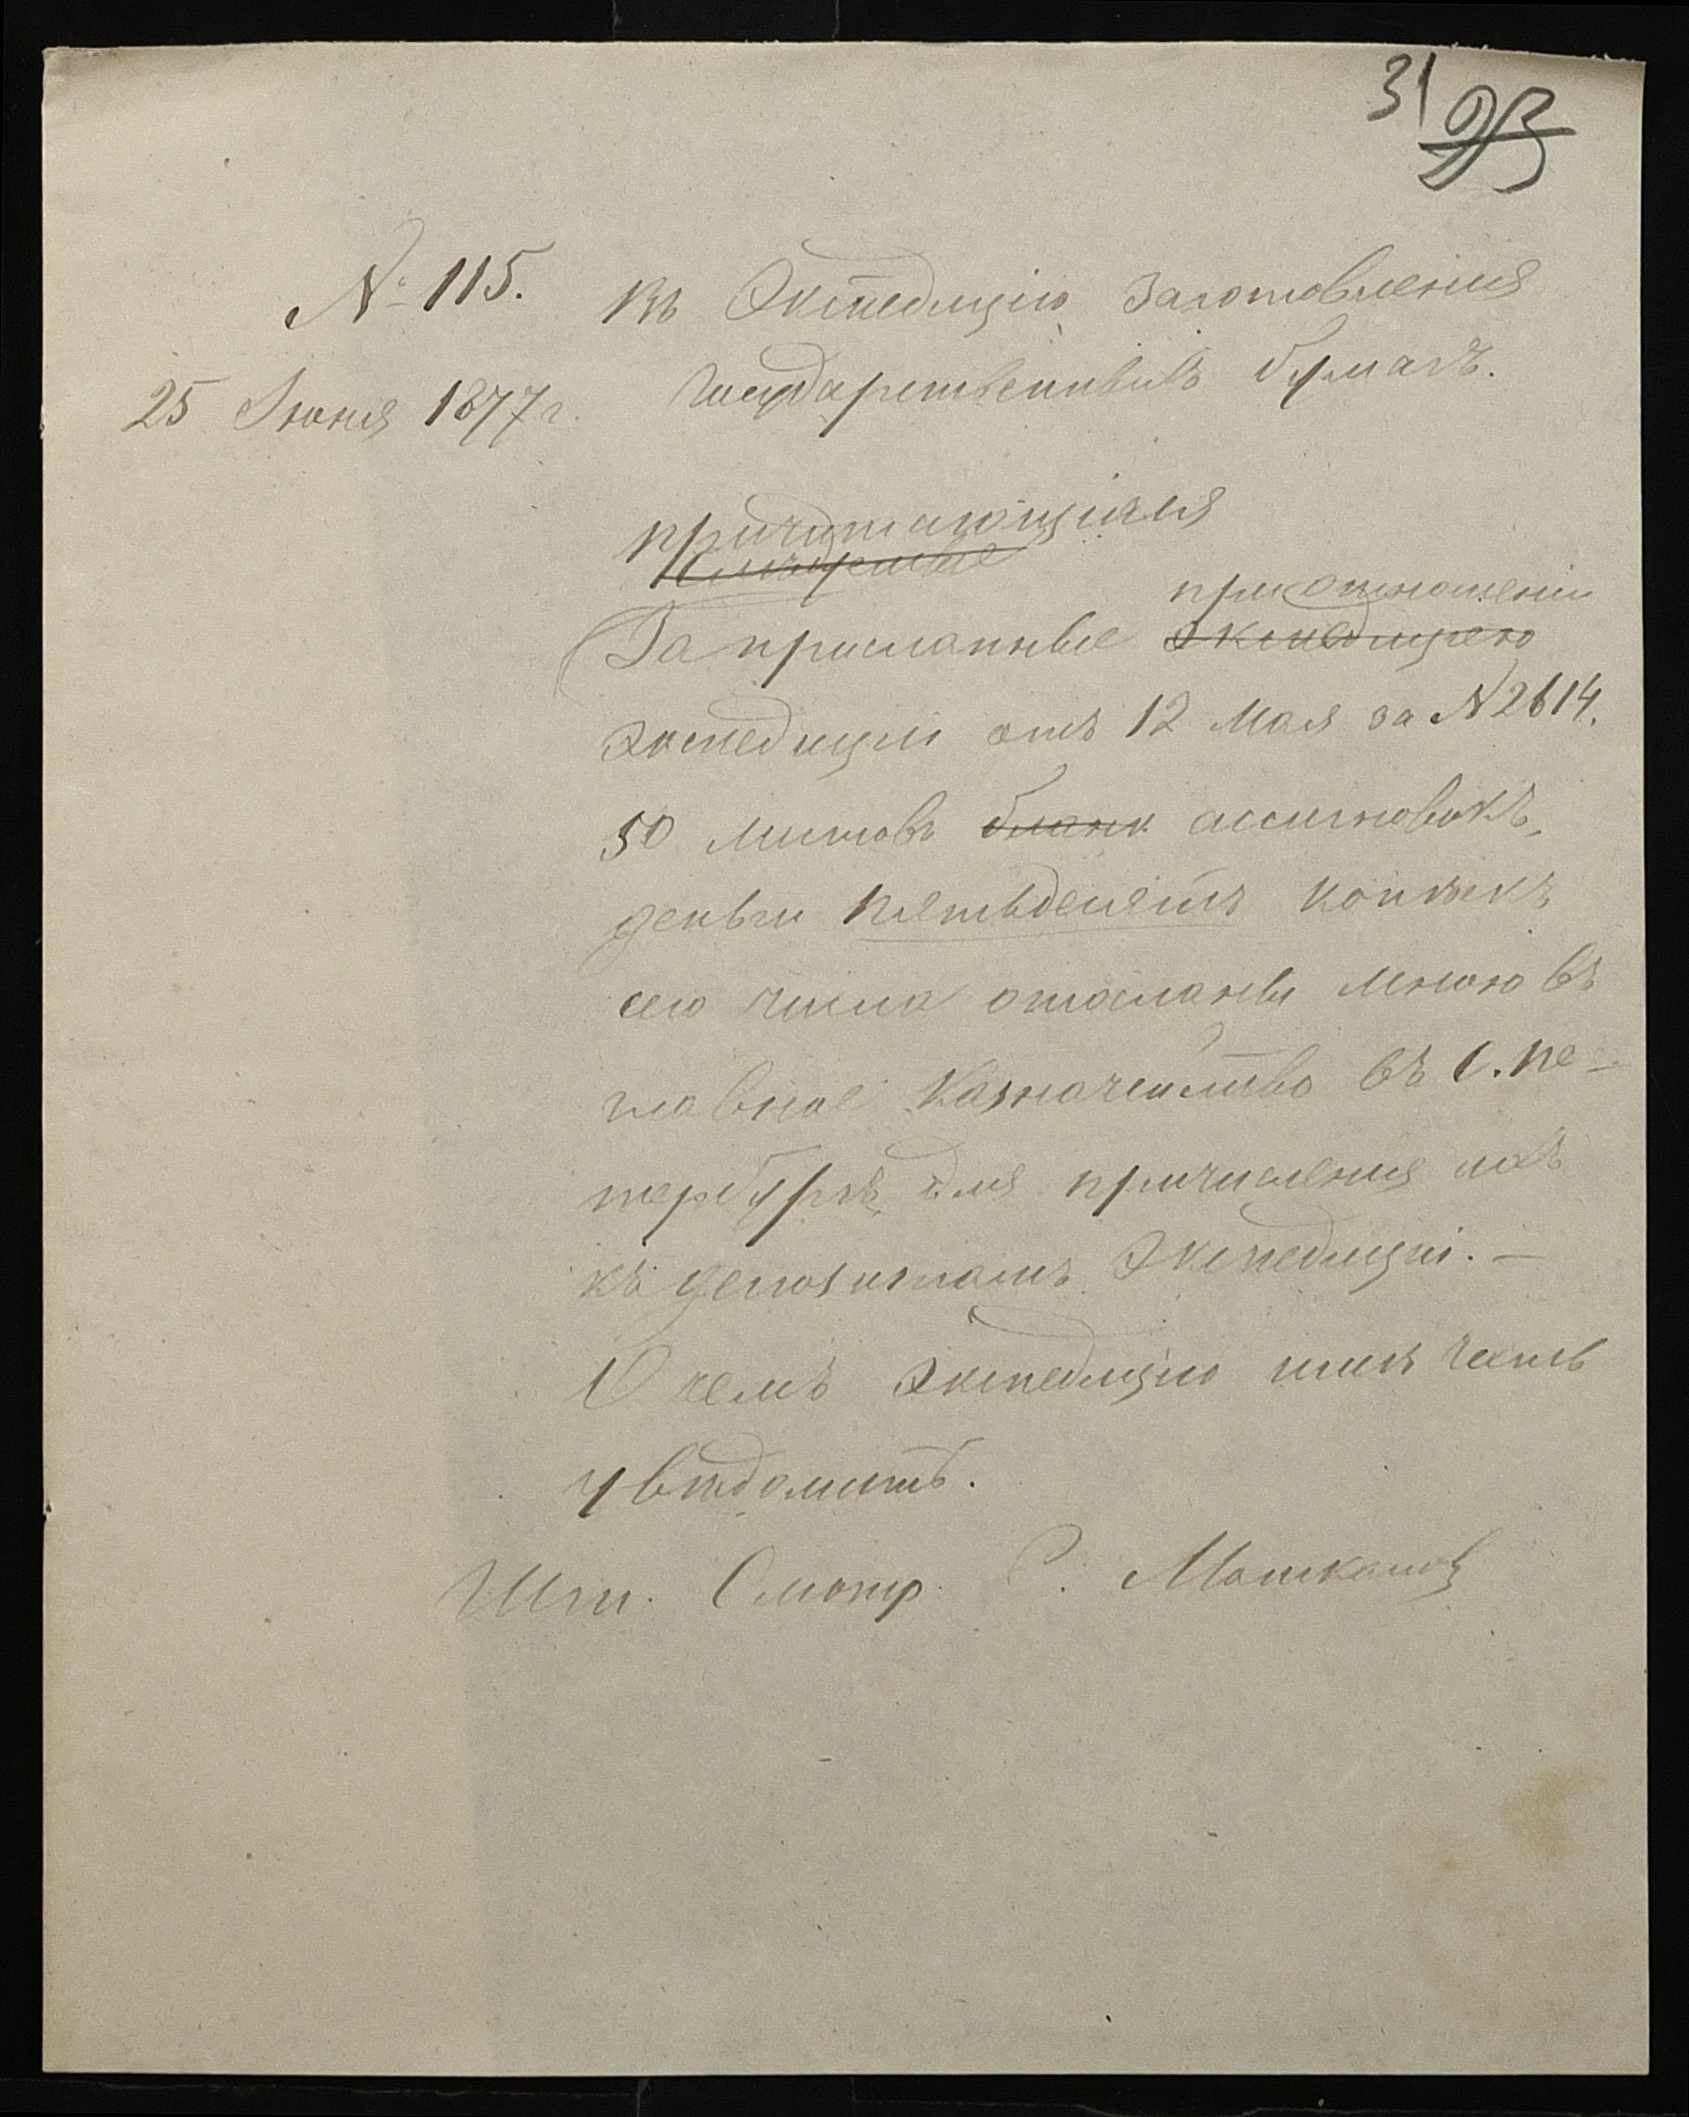 31 93
№ 115.
Въ Экспедицію Заготовленія
Государственныхъ бумагъ.
25 Іюня 1877 г.
причитающіяся
при отношеніи
За присланные Экспедицею
экспедиціи отъ 12 Мая за № 2614.
50 листовъ бланк ассигновокъ,
деньги пятьдесятъ копѣекъ
сего числа отосланы мною въ
главное Казначейство въ С. Пе-
тербургъ для причисленія ихъ
къ депозитамъ Экспедиціи. —
О чемъ экспедицію имѣю честь
увѣдомить.
Шт. Смотр.